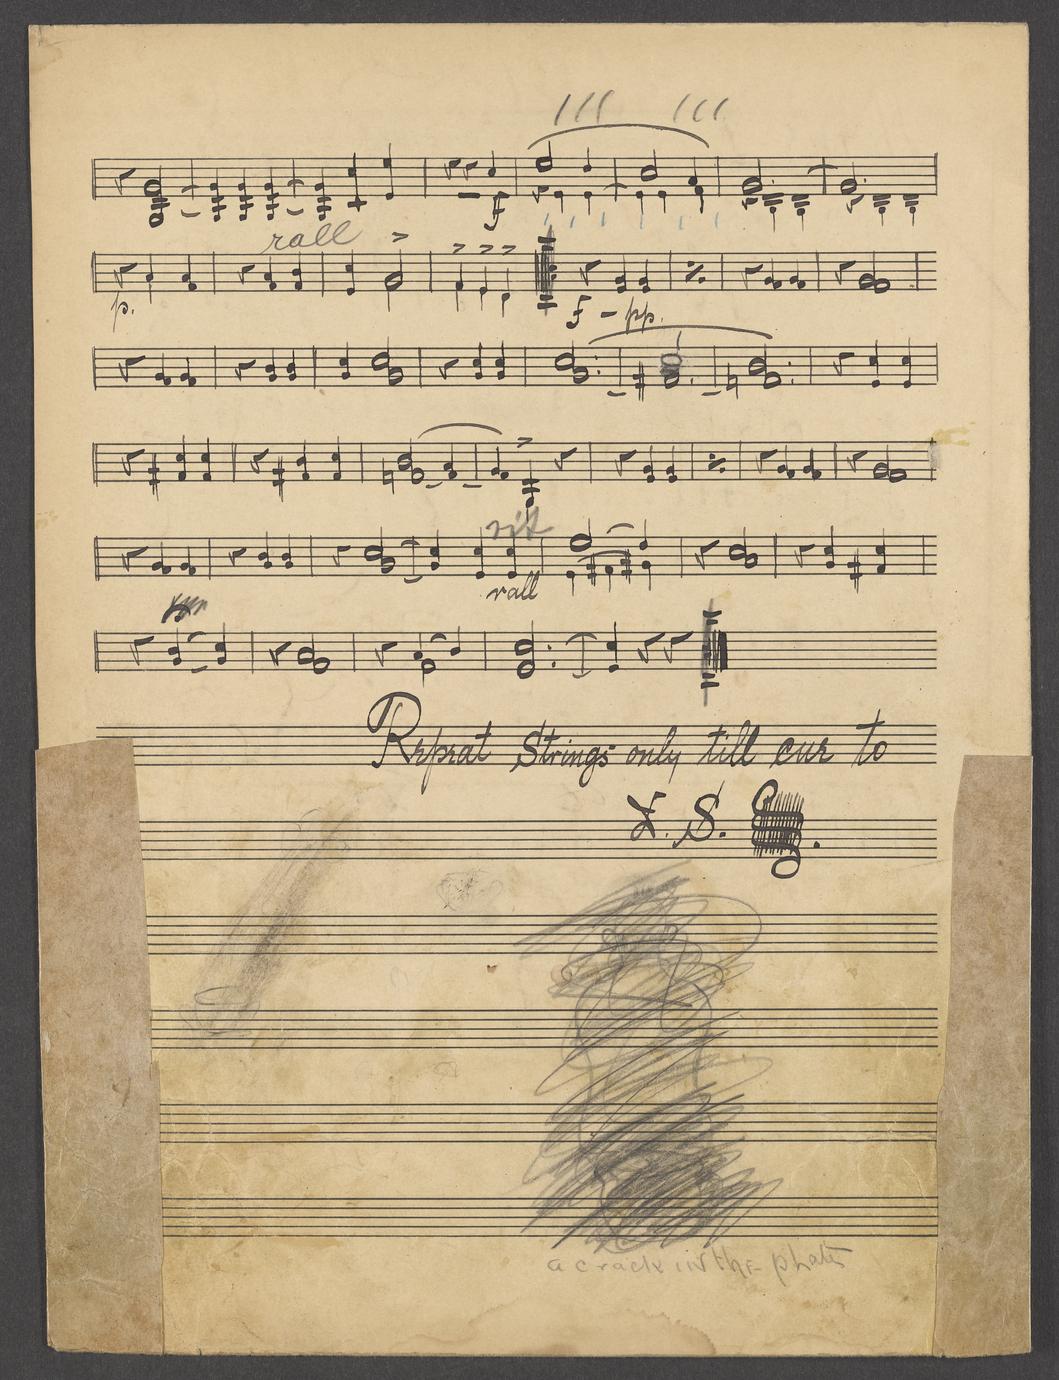 rall
p.
f - pp.
f
rit
rall
Repeat Strings only till cue to
D. S.
a crack in the plate